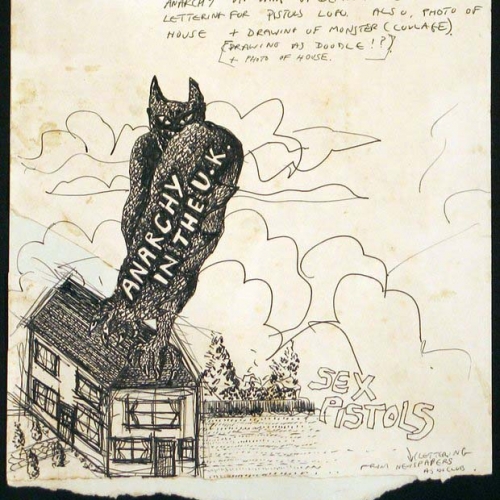 LETTERING FOR PISTOLS LOGO. ALSO, PHOTO OF
HOUSE + DRAWING OF MONSTER (COLLAGE).
[DRAWING AS DOODLE!?]
+ PHOTO OF HOUSE.
ANARCHY
IN THE U.K.
SEX
PISTOLS
LETTERING
FROM NEWSPAPERS
AS USUAL.